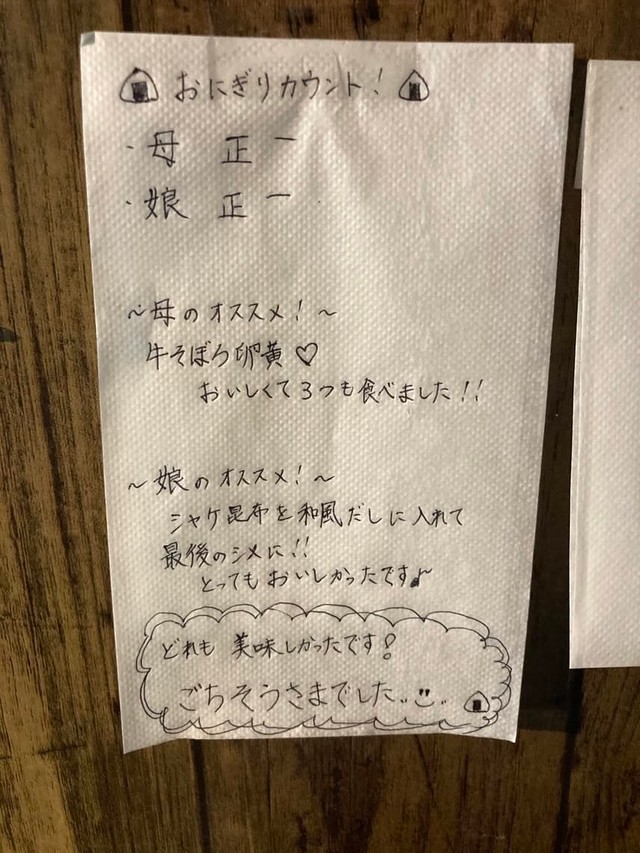 おにぎりカウント!
・母 正一
・娘 正一
~母のオススメ!~
牛そぼろ卵黄♡
おいしくて3つも食べました!!
~娘のオススメ!~
シャケ昆布を和風だしに入れて
最後のシメに!!
とってもおいしかったです♪
どれも美味しかったです!
ごちそうさまでした